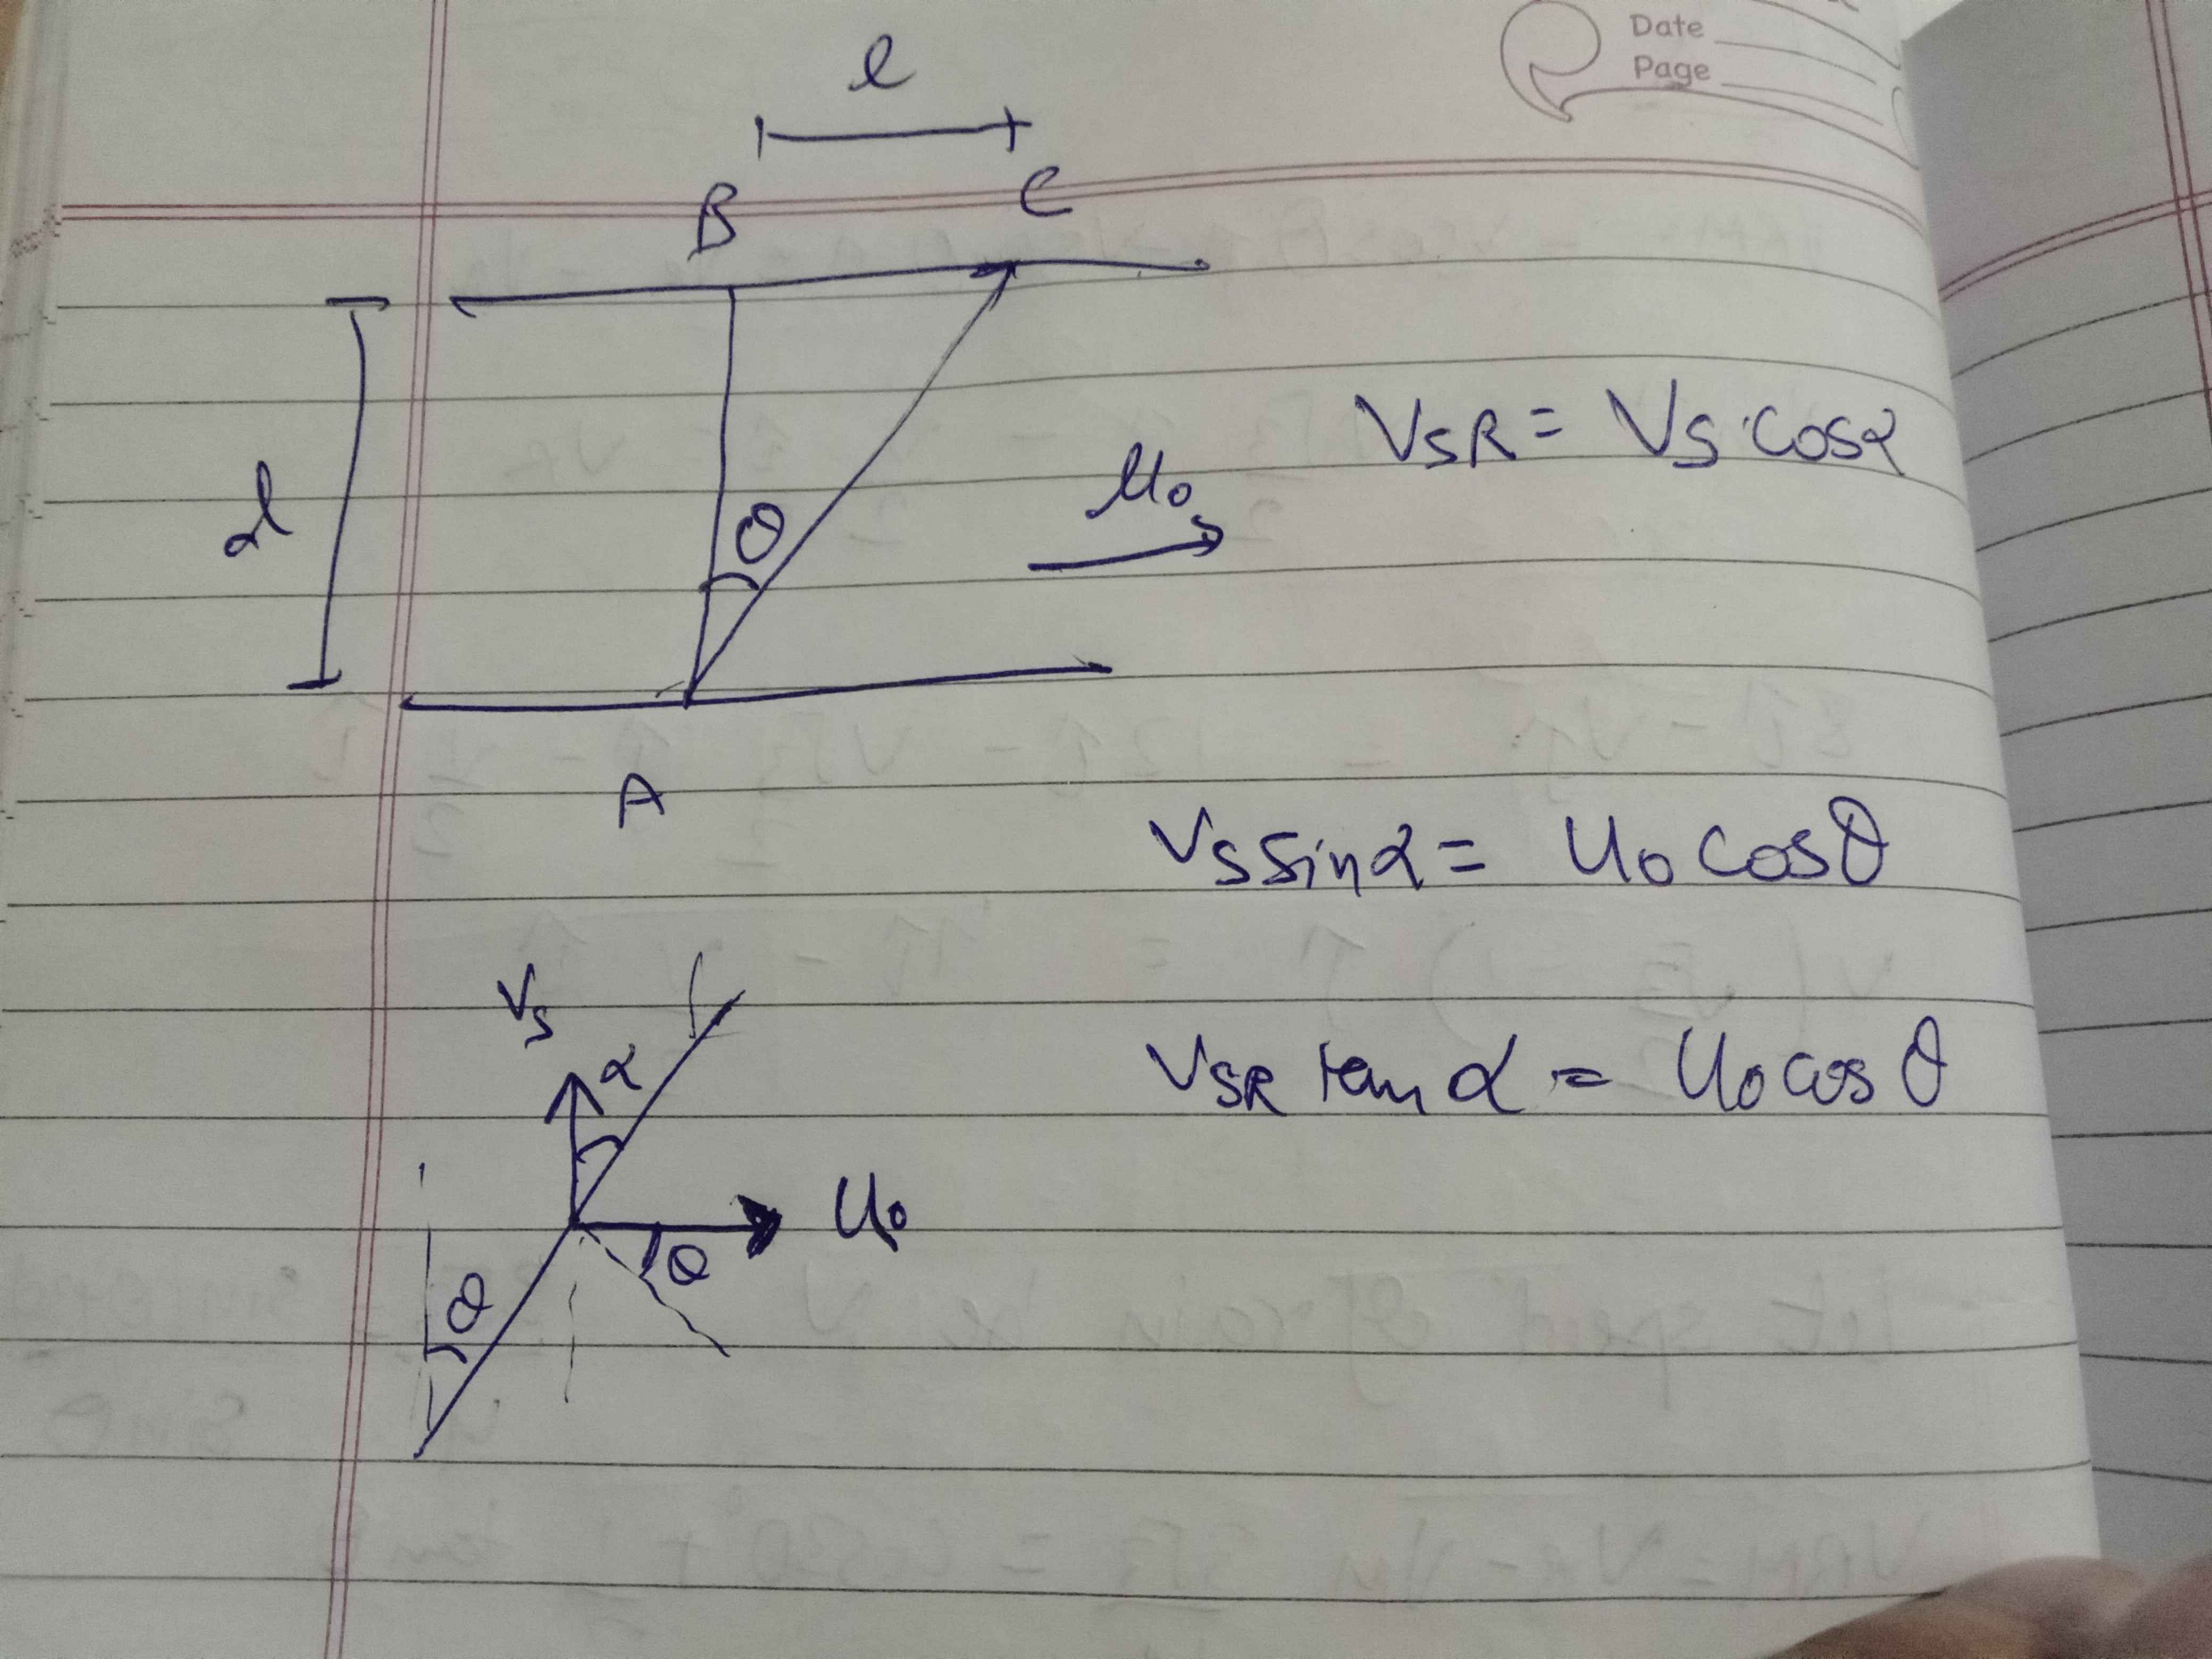 Date
Page
l
B C
d
θ
u₀
V_SR = V_S cosα
A
V_S sinα = u₀ cosθ
V_S
α
V_SR tanα = u₀ cosθ
u₀
θ
θ